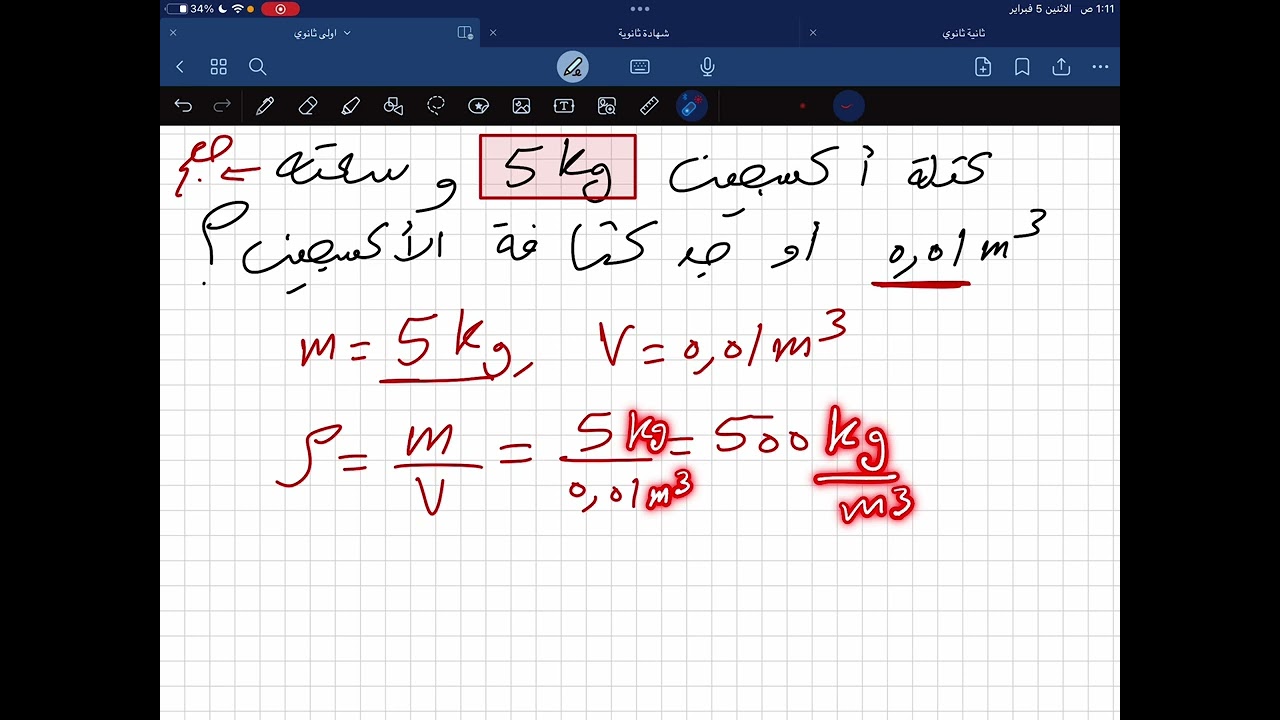 34% 1:11 ص الاثنين 5 فبراير
اولى ثانوي شهادة ثانوية ثانية ثانوي
كتلة أكسجين 5 kg وسعته ← حجم
0,01 m³ أوجد كثافة الأكسجين؟
m = 5 kg, V = 0,01 m³
ρ = m/V = 5 kg/0,01 m³ = 500 kg/m³